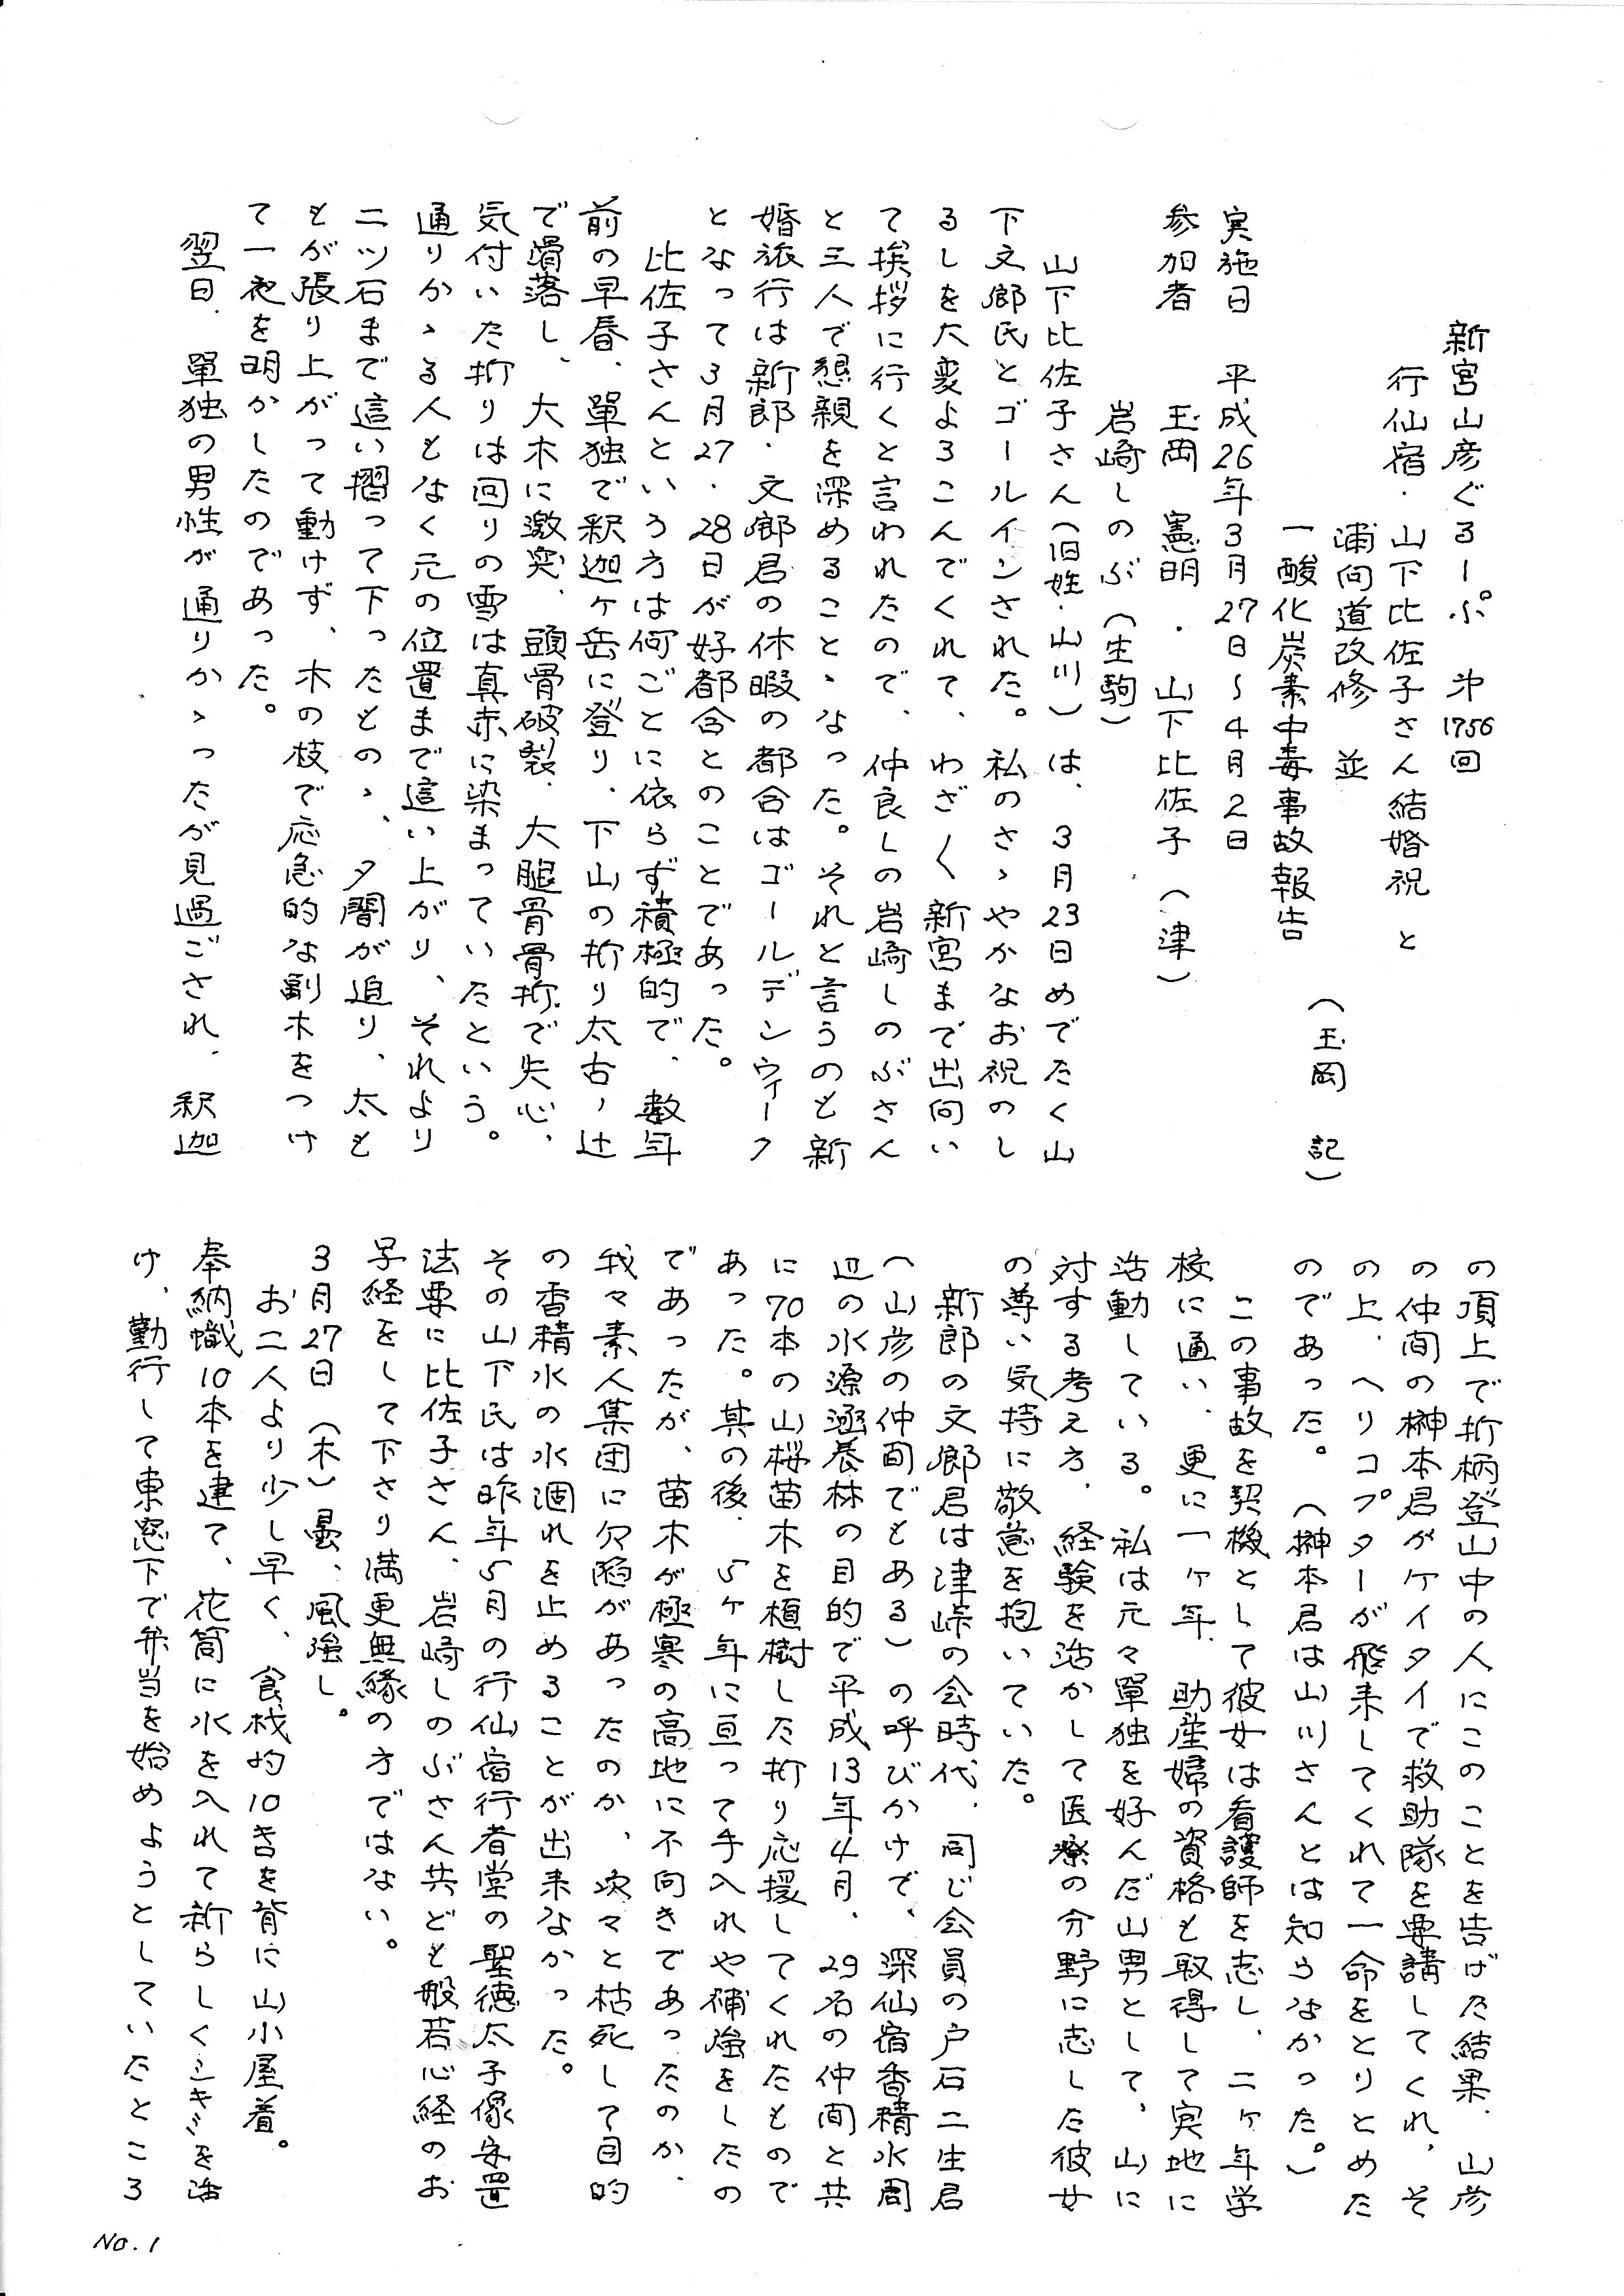 新宮山彦ぐるーぷ　第1756回
行仙宿・山下比佐子さん結婚祝　と
浦向道改修　並
一酸化炭素中毒事故報告
（玉岡　記）
実施日　平成26年3月27日～4月2日
参加者　玉岡　憲明・山下比佐子（津）
岩崎しのぶ（生駒）
山下比佐子さん（旧姓・山川）は、3月23日めでたく山
下文郷氏とゴールインされた。私のさゝやかなお祝のし
るしを大変よろこんでくれて、わざ〱新宮まで出向い
て挨拶に行くと言われたので、仲良しの岩崎しのぶさん
と三人で懇親を深めることゝなった。それと言うのも新
婚旅行は新郎・文郷君の休暇の都合はゴールデンウィーク
となって3月27・28日が好都合とのことであった。
比佐子さんという方は何ごとに依らず積極的で、数年
前の早春、單独で釈迦ヶ岳に登り、下山の折り太古ノ辻
で滑落し、大木に激突、頭骨破裂、大腿骨骨折で失心、
気付いた折りは回りの雪は真赤に染まっていたという。
通りかゝる人もなく元の位置まで這い上がり、それより
二ツ石まで這い摺って下ったものゝ、夕闇が迫り、太も
もが張り上がって動けず、木の枝で応急的な副木をつけ
て一夜を明かしたのであった。
翌日、單独の男性が通りかゝったが見過ごされ、釈迦
の頂上で折柄登山中の人にこのことを告げた結果、山彦
の仲間の榊本君がケイタイで救助隊を要講してくれ、そ
の上、ヘリコプターが飛来してくれて一命をとりとめた
のであった。（榊本君は山川さんとは知らなかった。）
この事故を契機として彼女は看護師を志し、二ヶ年学
校に通い、更に一ヶ年、助産婦の資格も取得して実地に
活動している。私は元々單独を好んだ山男として、山に
対する考え方、経験を活かして医療の分野に志した彼女
の尊い気持に敬意を抱いていた。
新郎の文郷君は津峠の会時代、同じ会員の戸石二生君
（山彦の仲間でもある）の呼びかけで、深仙宿香精水周
辺の水源涵養林の目的で平成13年4月、29名の仲間と共
に70本の山桜苗木を植樹した折り応援してくれたもので
あった。其の後、5ヶ年に亘って手入れや補強をしたの
であったが、苗木が極寒の高地に不向きであったのか、
我々素人集団に欠陥があったのか、次々と枯死して目的
の香精水の水涸れを止めることが出来なかった。
その山下氏は昨年5月の行仙宿行者堂の聖徳太子像安置
法要に比佐子さん、岩崎しのぶさん共ども般若心経のお
写経をして下さり満更無縁の方ではない。
3月27日（木）曇、風強し。
お二人より少し早く、食材約10キロを背に山小屋着。
奉納幟10本を建て、花筒に水を入れて新らしくシキミを活
け、勤行して東窓下で弁当を始めようとしていたところ
No.1